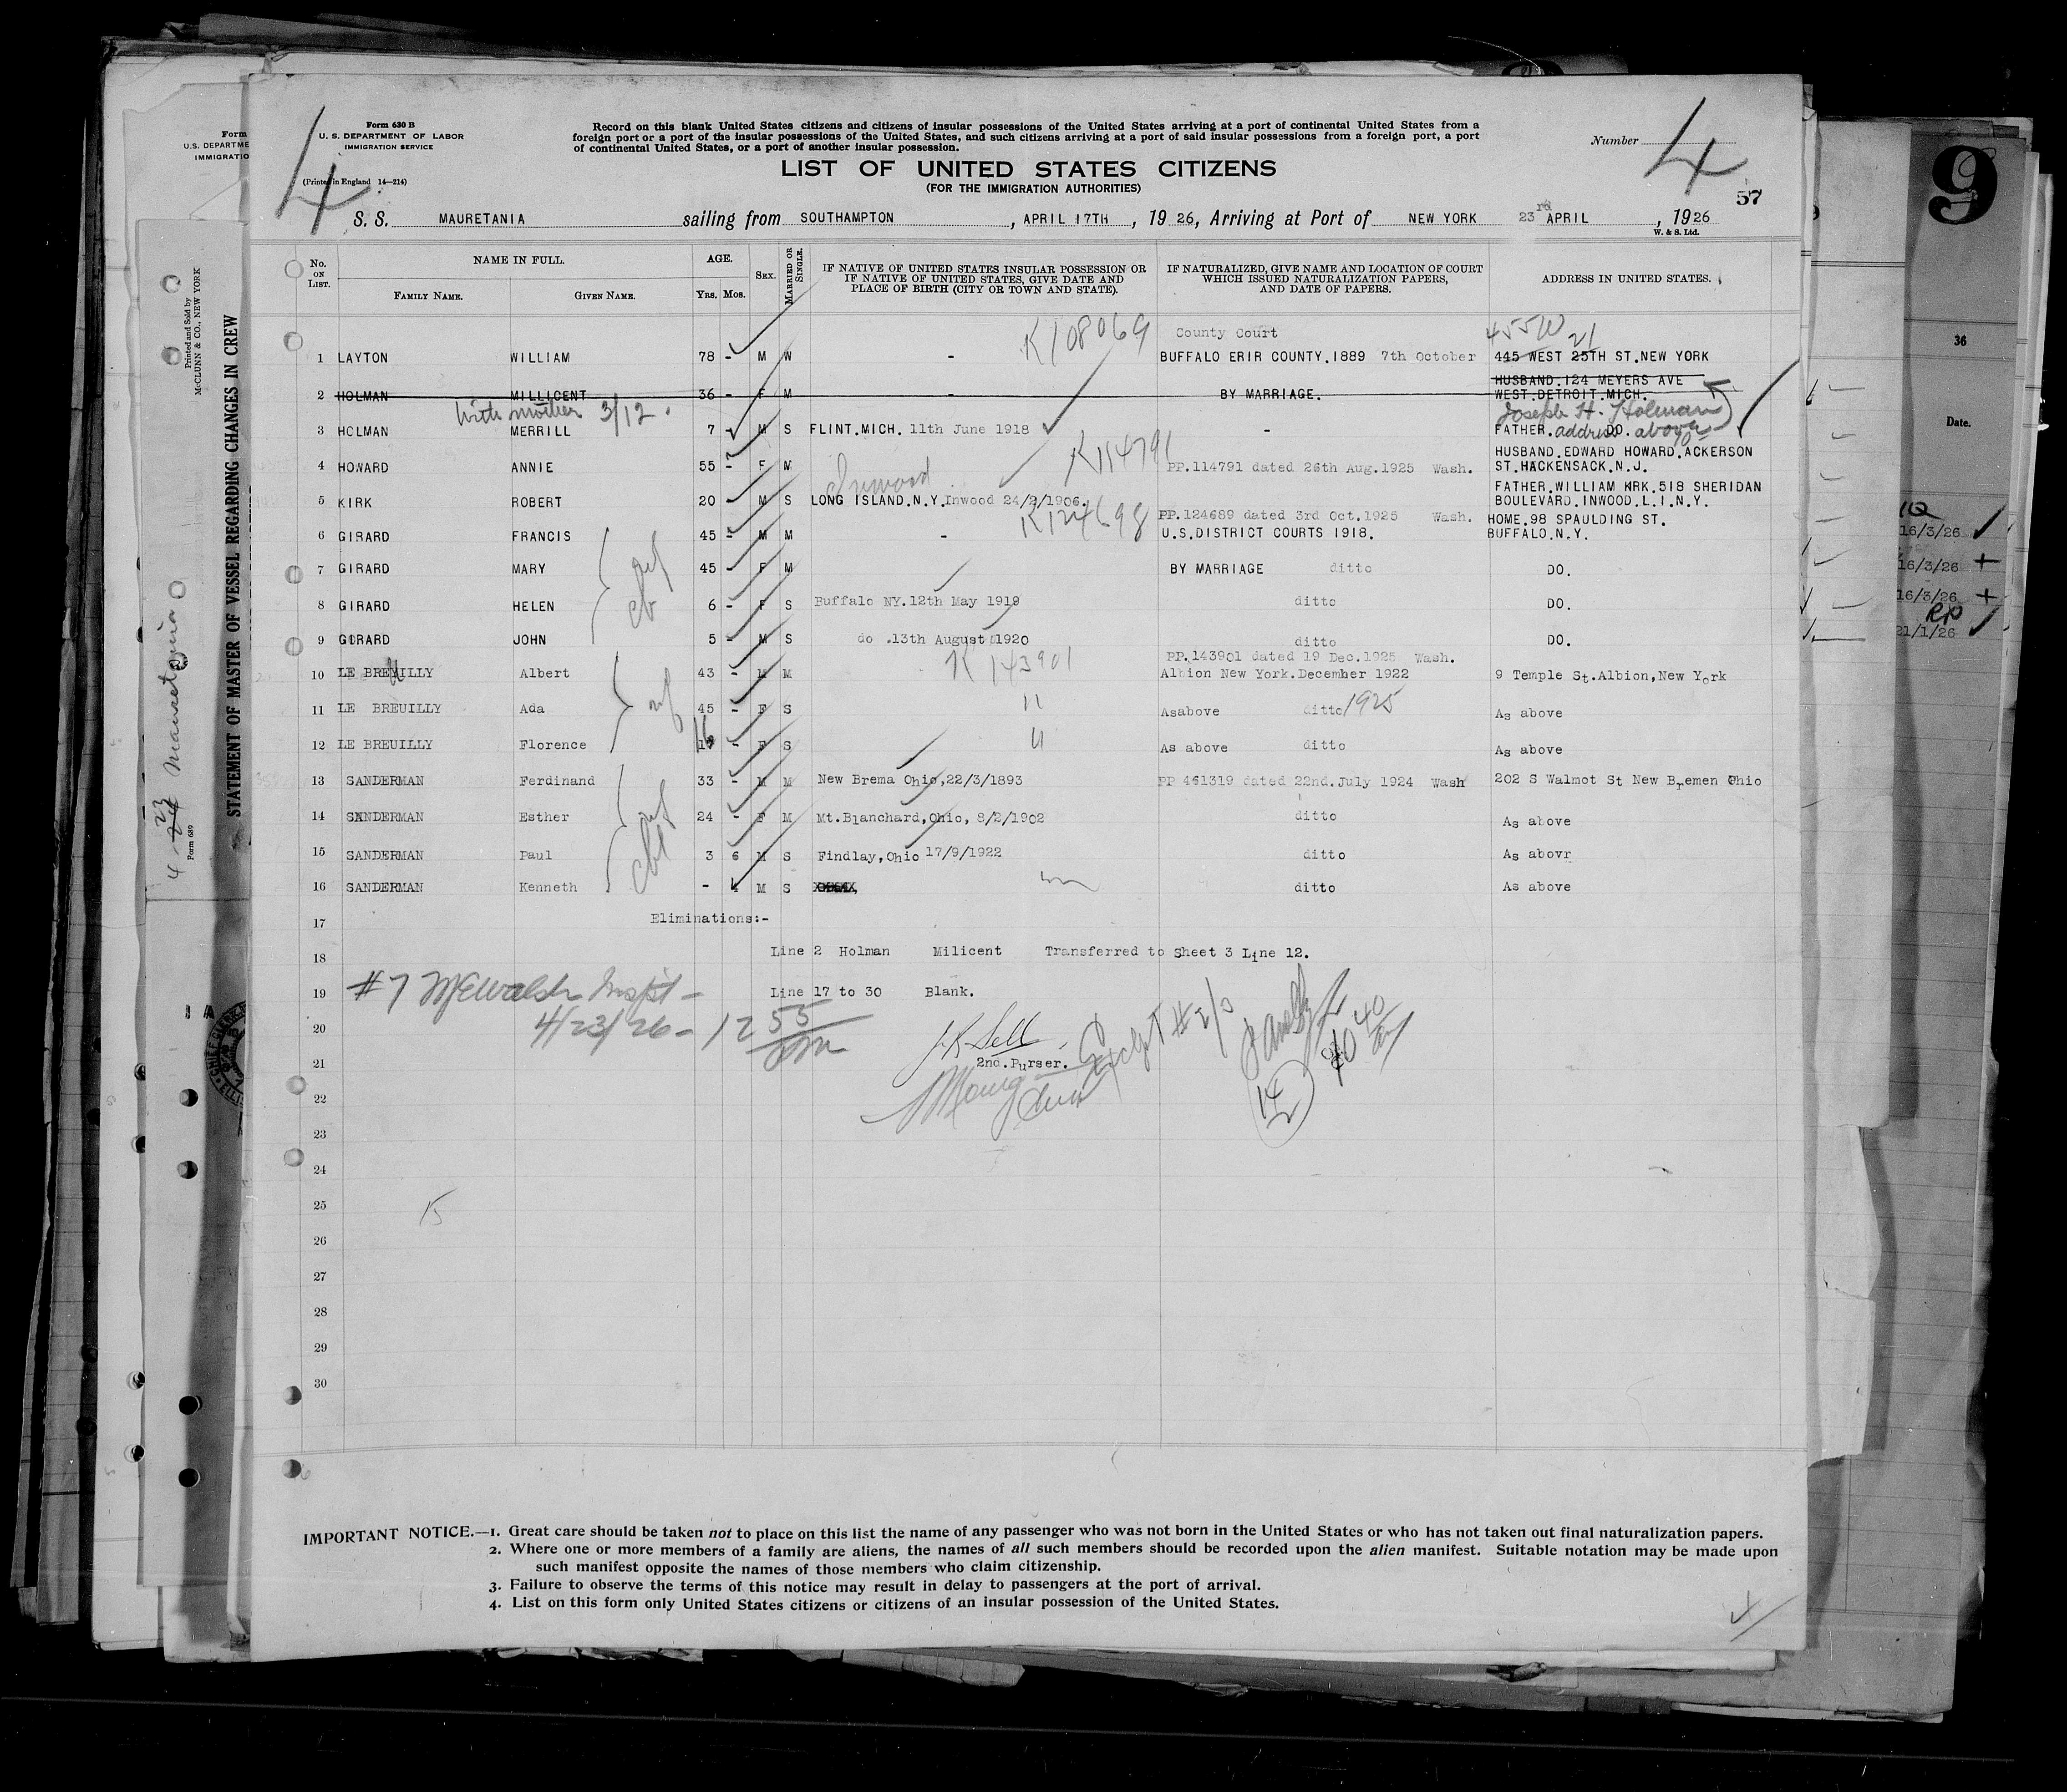 Form 630 B
U. S. DEPARTMENT OF LABOR
IMMIGRATION SERVICE
(Printed in England 14—214)
Record on this blank United States citizens and citizens of insular possessions of the United States arriving at a port of continental United States from a
foreign port or a port of the insular possessions of the United States, and such citizens arriving at a port of said insular possessions from a foreign port, a port
of continental United States, or a port of another insular possession.
LIST OF UNITED STATES CITIZENS
(FOR THE IMMIGRATION AUTHORITIES)
Number 4
4
57
S. S. MAURETANIA sailing from SOUTHAMPTON, APRIL 17TH, 19 26, Arriving at Port of NEW YORK 23rd APRIL, 1926
W. & S. Ltd.
No. ON LIST. NAME IN FULL. FAMILY NAME. GIVEN NAME. AGE. YRS. MOS. SEX. MARRIED OR SINGLE.
IF NATIVE OF UNITED STATES INSULAR POSSESSION OR IF NATIVE OF UNITED STATES, GIVE DATE AND PLACE OF BIRTH (CITY OR TOWN AND STATE).
IF NATURALIZED, GIVE NAME AND LOCATION OF COURT WHICH ISSUED NATURALIZATION PAPERS, AND DATE OF PAPERS.
ADDRESS IN UNITED STATES.
K108069 County Court 455 W 21
1 LAYTON WILLIAM 78 - M W - BUFFALO ERIR COUNTY.1889 7th October 445 WEST 25TH ST.NEW YORK
HUSBAND.124 MEYERS AVE
2 HOLMAN MILLICENT 36 - F M - BY MARRIAGE. WEST.DETROIT.MICH.
With mother 3/12. Joseph H. Holman
3 HOLMAN MERRILL 7 M S FLINT.MICH. 11th June 1918 - FATHER. DO. address above
K114791 HUSBAND.EDWARD HOWARD.ACKERSON
4 HOWARD ANNIE 55 - F M PP.114791 dated 26th Aug.1925 Wash. ST.HACKENSACK.N.J.
Inwood FATHER.WILLIAM KRK.518 SHERIDAN
5 KIRK ROBERT 20 - M S LONG ISLAND.N.Y.Inwood 24/2/1906. BOULEVARD.INWOOD.L.I.N.Y.
K124698 PP.124689 dated 3rd Oct.1925 Wash. HOME.98 SPAULDING ST.
6 GIRARD FRANCIS 45 - M M - U.S.DISTRICT COURTS 1918. BUFFALO.N.Y.
7 GIRARD MARY 45 - F M BY MARRIAGE ditto DO.
8 GIRARD HELEN 6 - F S Buffalo NY.12th May 1919 ditto DO.
9 GIRARD JOHN 5 - M S do .13th August 1920 ditto DO.
K 143901 PP.143901 dated 19 Dec.1925 Wash.
10 LE BREUILLY Albert 43 - M M Albion New York.December 1922 9 Temple St.Albion,New York
11 LE BREUILLY Ada 45 - F S " Asabove ditto 1925 As above
12 LE BREUILLY Florence 16 - F S " As above ditto As above
13 SANDERMAN Ferdinand 33 - M M New Brema Ohio,22/3/1893 PP 461319 dated 22nd.July 1924 Wash 202 S Walmot St New Bremen Ohio
14 SANDERMAN Esther 24 - F M Mt.Blanchard,Ohio, 8/2/1902 ditto As above
15 SANDERMAN Paul 3 6 M S Findlay,Ohio 17/9/1922 ditto As abovr
16 SANDERMAN Kenneth - M S ditto As above
17 Eliminations:-
18 Line 2 Holman Milicent Transferred to Sheet 3 Line 12.
19 Line 17 to 30 Blank.
#7 McWalsh Inspt -
4/23/26 - 12 55 pm
20
21 2nd.Purser.
22
23
24
25
15
26
27
28
29
30
IMPORTANT NOTICE.—1. Great care should be taken not to place on this list the name of any passenger who was not born in the United States or who has not taken out final naturalization papers.
2. Where one or more members of a family are aliens, the names of all such members should be recorded upon the alien manifest. Suitable notation may be made upon
such manifest opposite the names of those members who claim citizenship.
3. Failure to observe the terms of this notice may result in delay to passengers at the port of arrival.
4. List on this form only United States citizens or citizens of an insular possession of the United States.
4
Form
U. S. DEPARTME
IMMIGRATIO
Printed and Sold by
McCLUNN & CO., NEW YORK
STATEMENT OF MASTER OF VESSEL REGARDING CHANGES IN CREW
Form 689
Mauretania
9
36
Date.
16/3/26
16/3/26
16/3/26
21/1/26